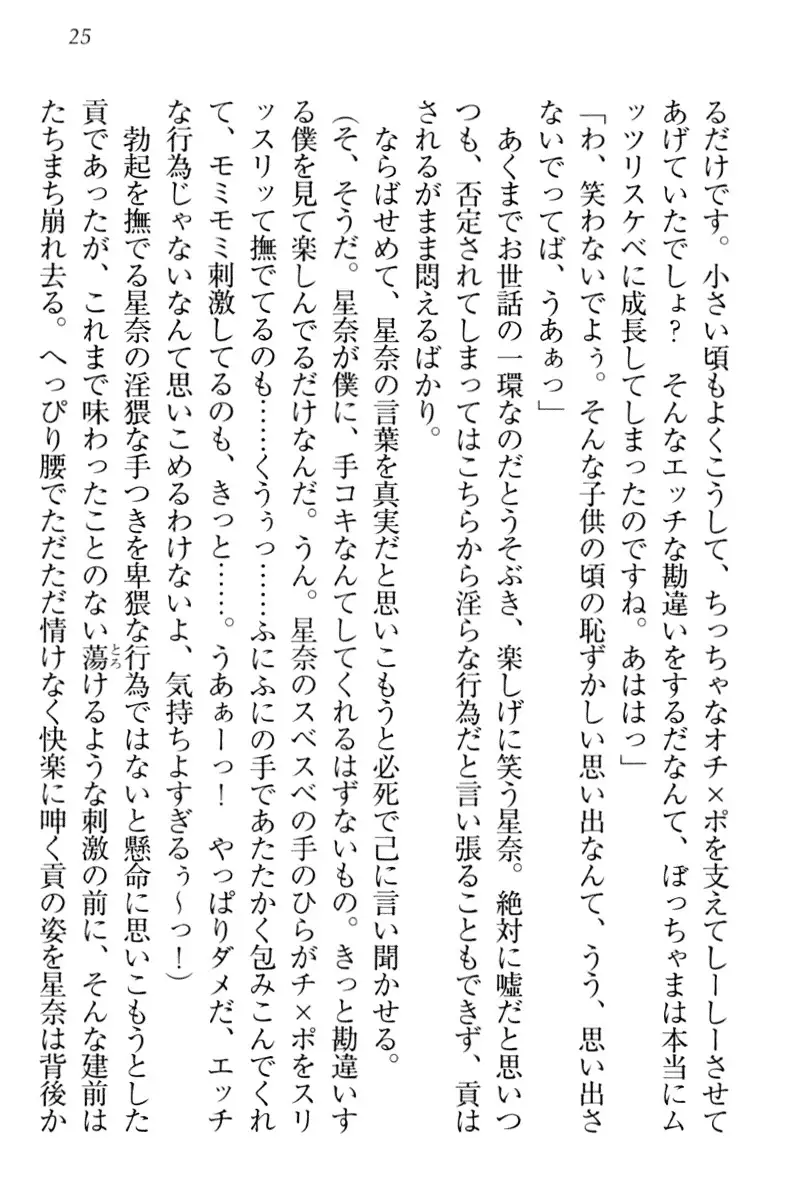 25
るだけです。小さい頃もよくこうして、ちっちゃなオチ×ポを支えてしーしーさせて
あげていたでしょ？　そんなエッチな勘違いをするだなんて、ぼっちゃまは本当にム
ッツリスケベに成長してしまったのですね。あははっ」
「わ、笑わないでよぅ。そんな子供の頃の恥ずかしい思い出なんて、うう、思い出さ
ないでってば、うあぁっ」
　あくまでお世話の一環なのだとうそぶき、楽しげに笑う星奈。絶対に嘘だと思いつ
つも、否定されてしまってはこちらから淫らな行為だと言い張ることもできず、貢は
されるがまま悶えるばかり。
　ならばせめて、星奈の言葉を真実だと思いこもうと必死で己に言い聞かせる。
（そ、そうだ。星奈が僕に、手コキなんてしてくれるはずないもの。きっと勘違いす
る僕を見て楽しんでるだけなんだ。うん。星奈のスベスベの手のひらがチ×ポをスリ
ッスリッて撫でてるのも……くうぅっ……ふにふにの手であたたかく包みこんでくれ
て、モミモミ刺激してるのも、きっと……。うあぁーっ！　やっぱりダメだ、エッチ
な行為じゃないなんて思いこめるわけないよ、気持ちよすぎるぅ～っ！）
　勃起を撫でる星奈の淫猥な手つきを卑猥な行為ではないと懸命に思いこもうとした
貢であったが、これまで味わったことのない蕩とろけるような刺激の前に、そんな建前は
たちまち崩れ去る。へっぴり腰でただただ情けなく快楽に呻く貢の姿を星奈は背後か